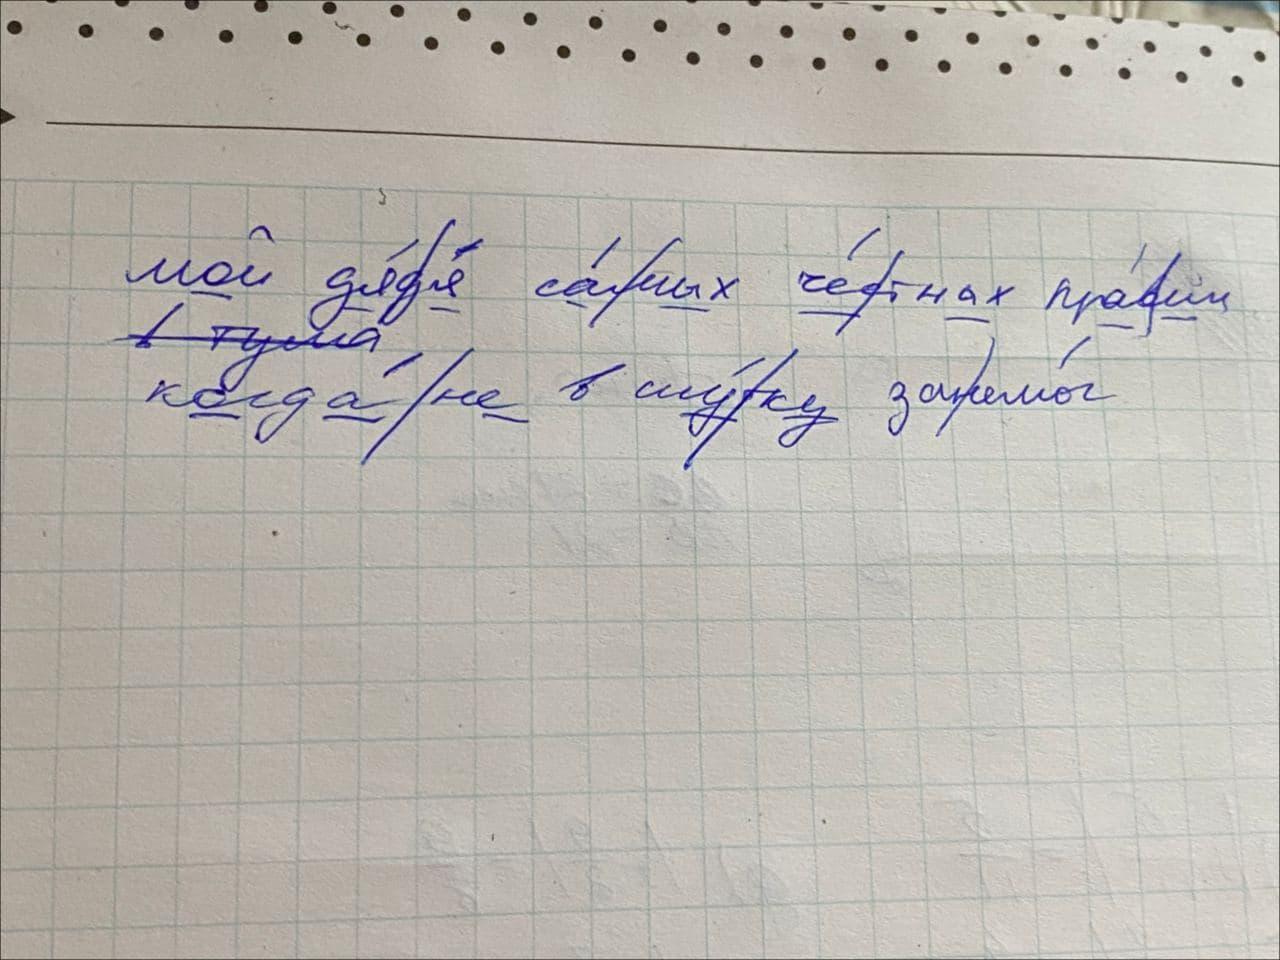 мой дядя самых честнах правил
в тума
когда не в шутку занемог